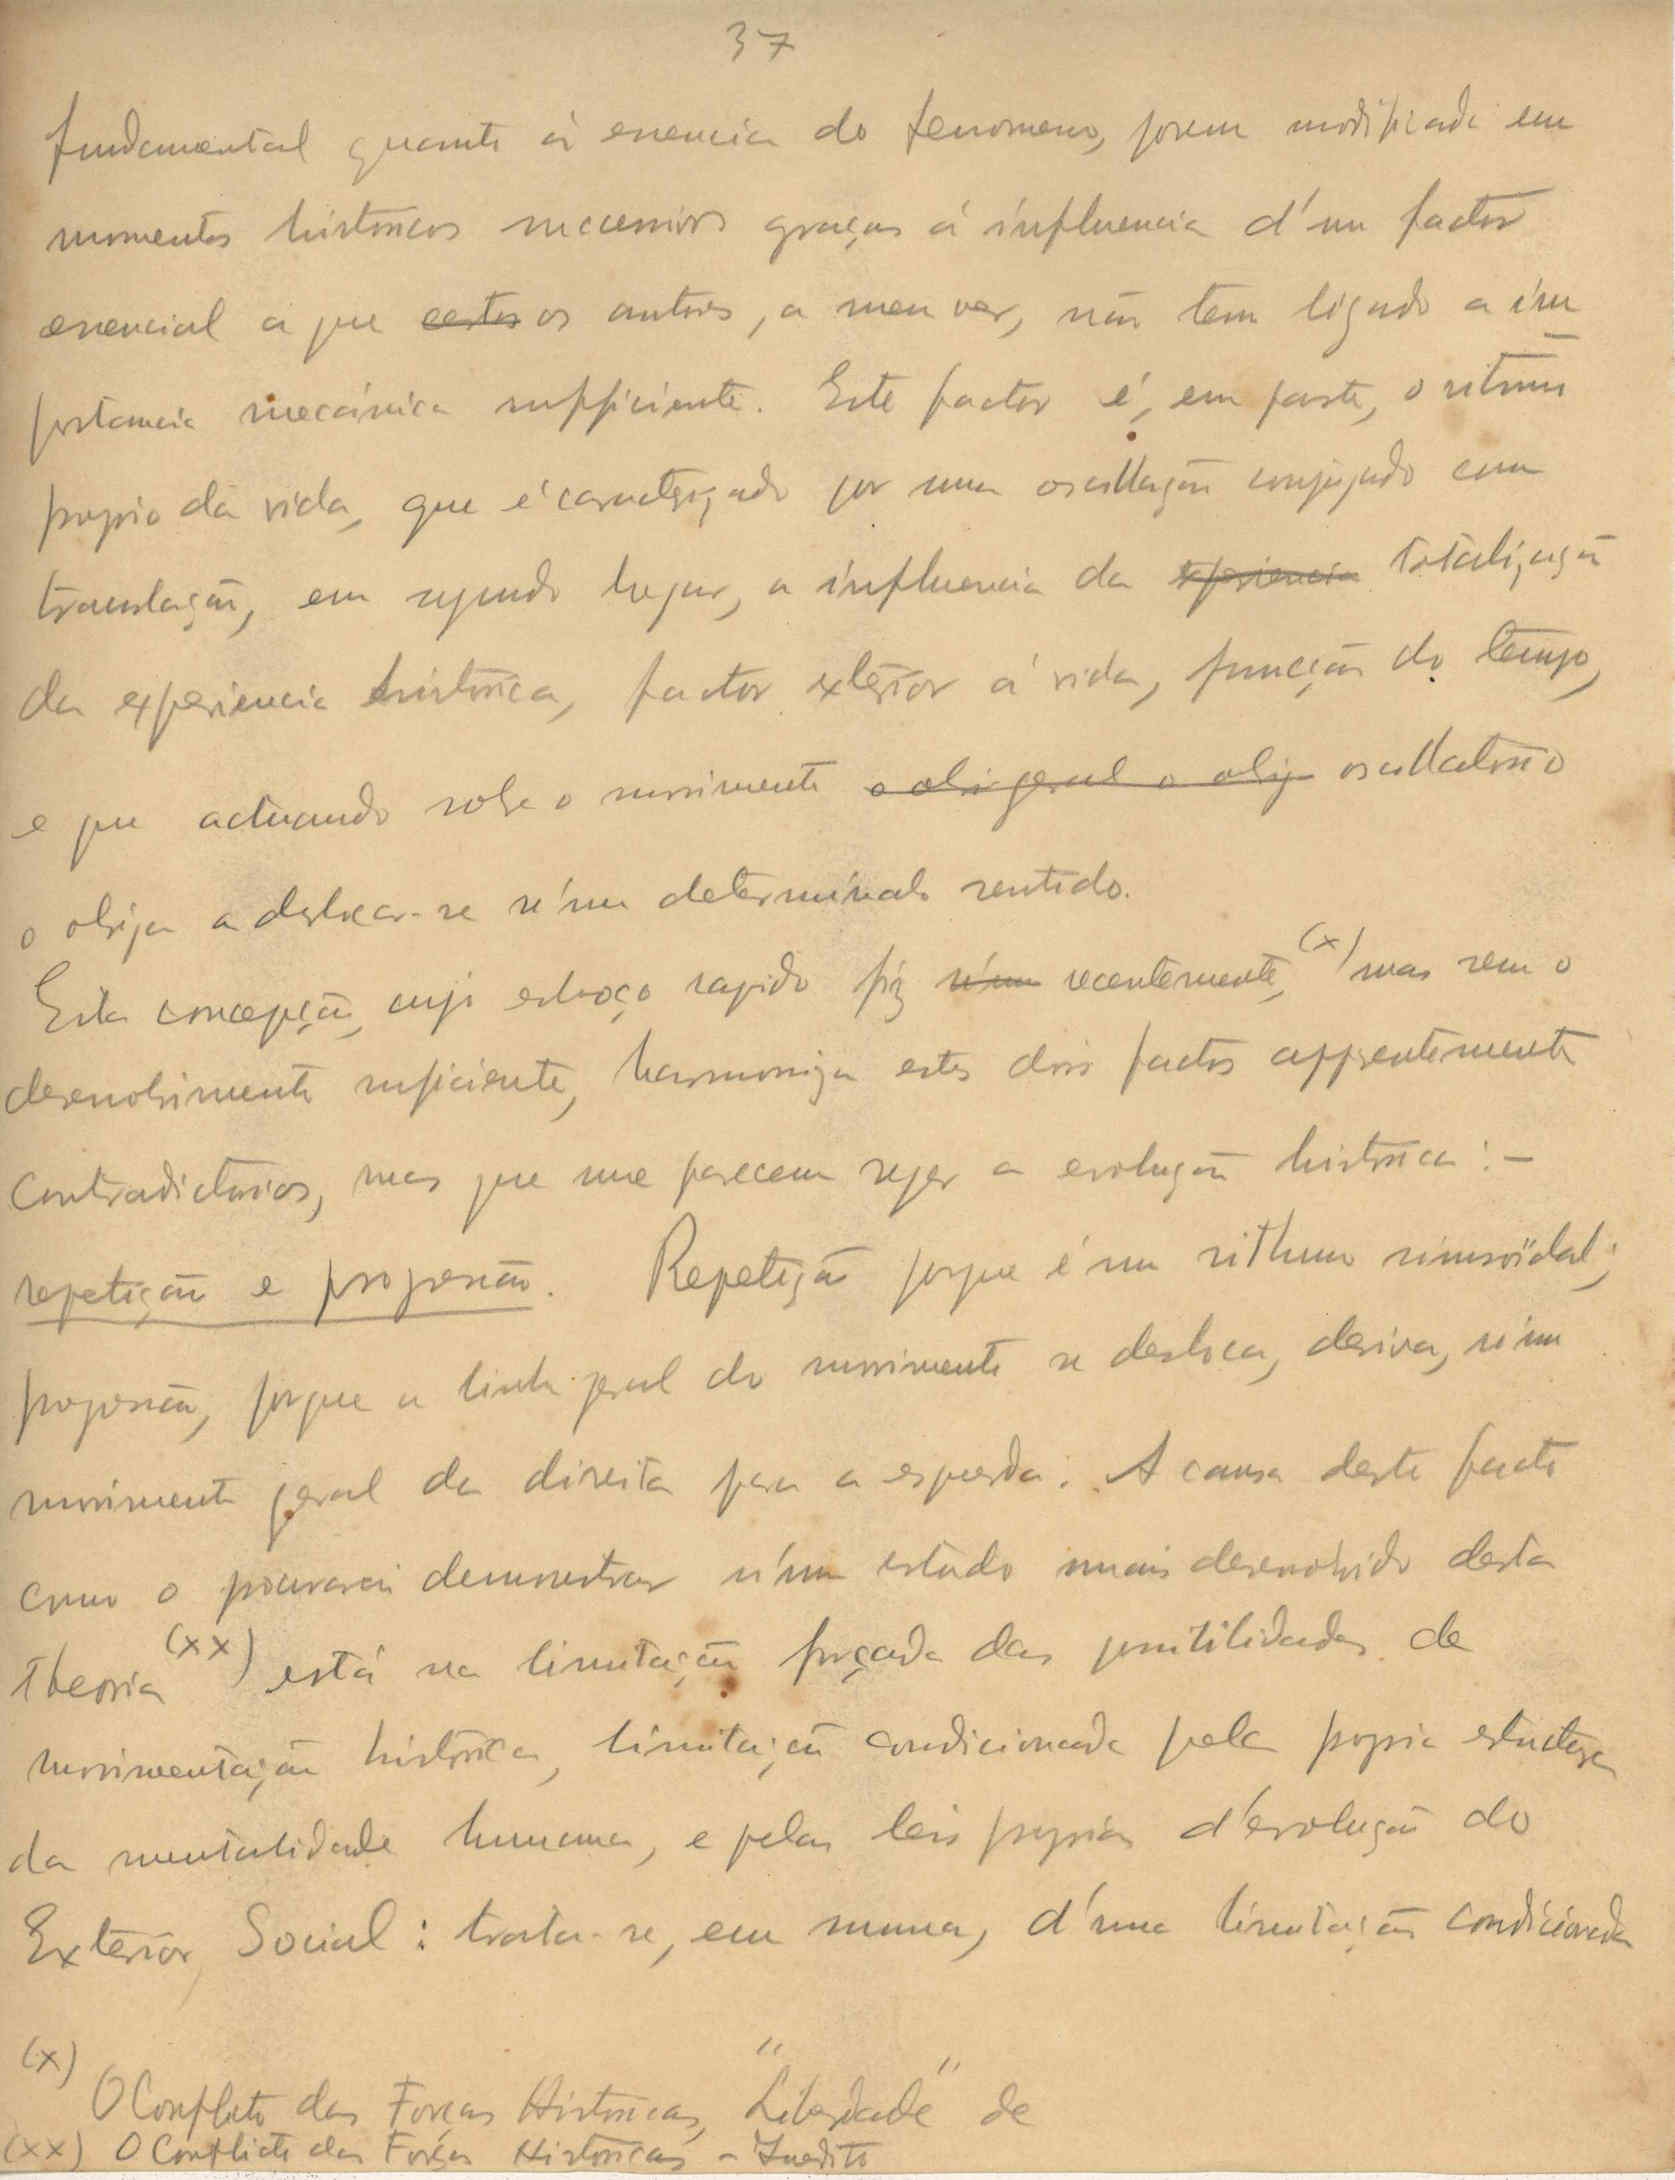 37
fundamental quanto á essencia do fenomeno, porem modificada em
momentos históricos sucessivos graças á influencia d'um factor
essencial a que certos os autores, a meu ver, não tem ligado a im
portancia mecánica sufficiente. Este factor é, em parte, o ritmo
proprio da vida, que é caracterizado por uma oscillação conjugado com
translação, em segundo lugar, a influencia da experiencia totalização
da experiencia histórica, factor exterior á vida, funcção do tempo,
e que actuando sobre o movimento o obri geral o obrig oscillatorio
o obriga a deslocar-se n'um determinado sentido.
Esta concepção, cujo esboço rapido fiz n'um recentemente, (x) mas sem o
desenvolvimento suficiente, harmoniza estes dois factos apparentemente
contradictorios, mas que me parecem reger a evolução histórica: -
repetição e progressão. Repetição porque é um rithmo sinusoïdal;
progressão, porque a linha geral do movimento se desloca, deriva, n'um
movimento geral da direita para a esquerda. A causa deste facto
como o procurarei demonstrar n'um estudo mais desenvolvido desta
theoria (xx) está na limitação forçada das possibilidades de
movimentação histórica, limitação condicionada pela propria estructura
da mentalidade humana, e pelas leis proprias d'evolução do
Exterior Social: trata-se, em summa, d'uma limitação condicionada
(x)
O Conflito das Forças Históricas, "Liberdade" de
(xx) O Conflicto das Forças Históricas - Inedito